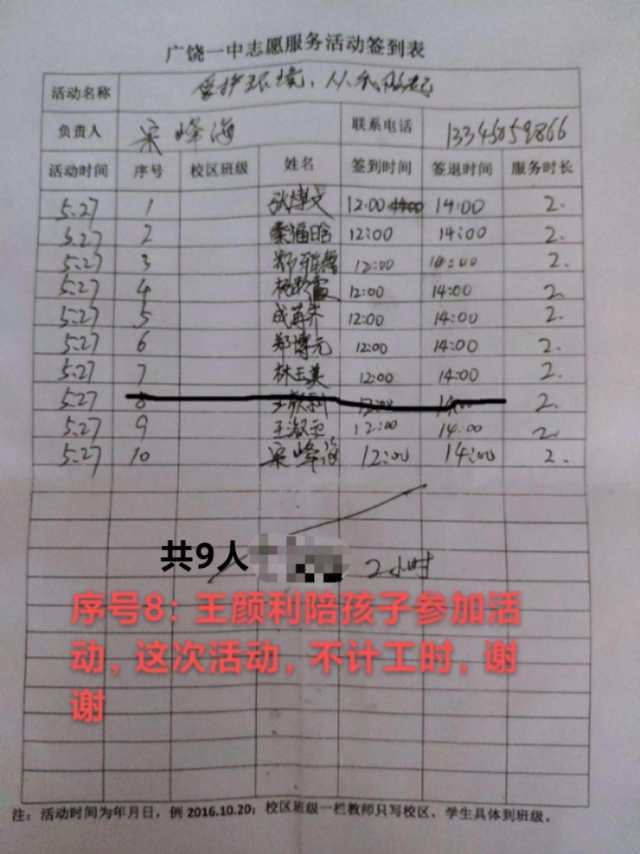 广饶一中志愿服务活动签到表
活动名称 爱护环境，从我做起
负责人 宋峰海 联系电话 13345059866
活动时间 序号 校区班级 姓名 签到时间 签退时间 服务时长
5.27 1 张博文 12:00 14:00 2.
5.27 2 12:00 14:00 2.
5.27 3 12:00 14:00 2.
5.27 4 12:00 14:00 2.
5.27 5 12:00 14:00 2.
5.27 6 郑博元 12:00 14:00 2.
5.27 7 林玉美 12:00 14:00 2.
5.27 8 王颜利 12:00 14:00 2.
5.27 9 12:00 14:00 2.
5.27 10 宋峰海 12:00 14:00 2.
共9人 2小时
序号8：王颜利陪孩子参加活
动，这次活动，不计工时，谢
谢
注：活动时间为年月日，例 2016.10.20；校区班级一栏教师只写校区，学生具体到班级。